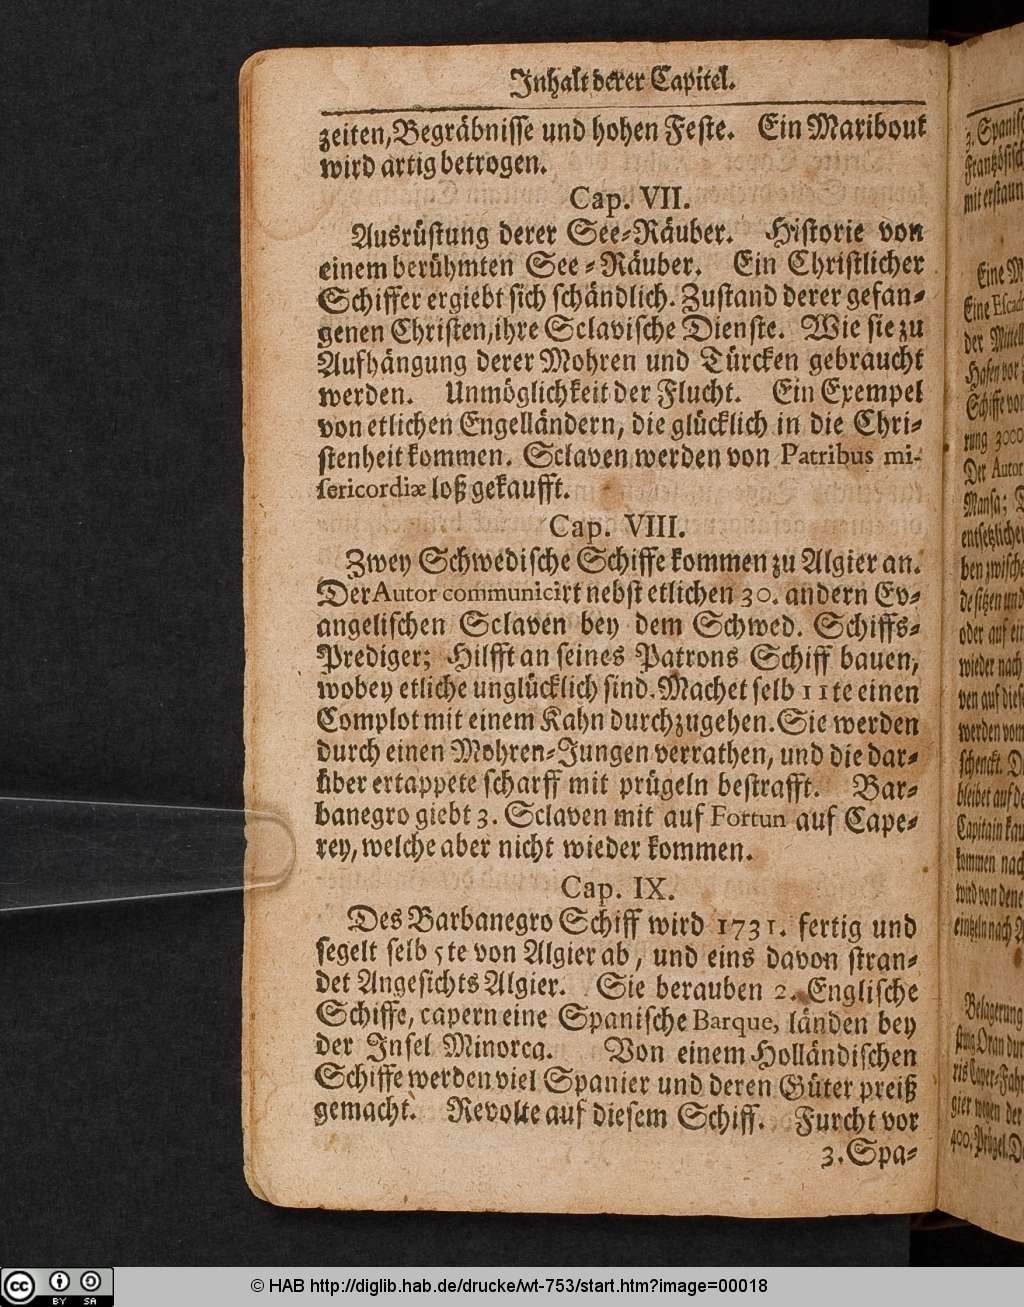 Inhalt derer Capitel.
zeiten, Begräbnisse und hohen Feste. Ein Maribout
wird artig betrogen.
Cap. VII.
Ausrüstung derer See-Räuber. Historie von
einem berühmten See-Räuber. Ein Christlicher
Schiffer ergiebt sich schändlich. Zustand derer gefan-
genen Christen, ihre Sclavische Dienste. Wie sie zu
Aufhängung derer Mohren und Türcken gebraucht
werden. Unmöglichkeit der Flucht. Ein Exempel
von etlichen Engelländern, die glücklich in die Chri-
stenheit kommen. Sclaven werden von Patribus mi-
sericordiæ loß gekaufft.
Cap. VIII.
Zwey Schwedische Schiffe kommen zu Algier an.
Der Autor communicirt nebst etlichen 30. andern Ev-
angelischen Sclaven bey dem Schwed. Schiffs-
Prediger; Hilfft an seines Patrons Schiff bauen,
wobey etliche unglücklich sind. Machet selb 11te einen
Complot mit einem Kahn durchzugehen. Sie werden
durch einen Mohren-Jungen verrathen, und die dar-
über ertappete scharff mit prügeln bestrafft. Bar-
banegro giebt 3. Sclaven mit auf Fortun auf Cape-
rey, welche aber nicht wieder kommen.
Cap. IX.
Des Barbanegro Schiff wird 1731. fertig und
segelt selb 5te von Algier ab, und eins davon stran-
det Angesichts Algier. Sie berauben 2. Englische
Schiffe, capern eine Spanische Barque, länden bey
der Insel Minorca. Von einem Holländischen
Schiffe werden viel Spanier und deren Güter preiß
gemacht. Revolte auf diesem Schiff. Furcht vor
3. Spa-
3. Spanisc
Frantzösisch
mit erstaun
Eine M
Eine Escad
der Mittell
Hafen vor
Schiffe von
rung 3000
Der Autor
Mansa;
entsetzliche
ben zwische
de sitzen und
oder auf ei
wieder nach
ven auf diese
werden vom
schenckt. D
bleibet auf de
Capitain kau
kommen nach
wird von dene
eintzeln nach A
Belagerung
stung Oran dur
ris Caper-Fah
gier wegen der
400. Prügel. D
© HAB http://diglib.hab.de/drucke/wt-753/start.htm?image=00018
cc BY SA